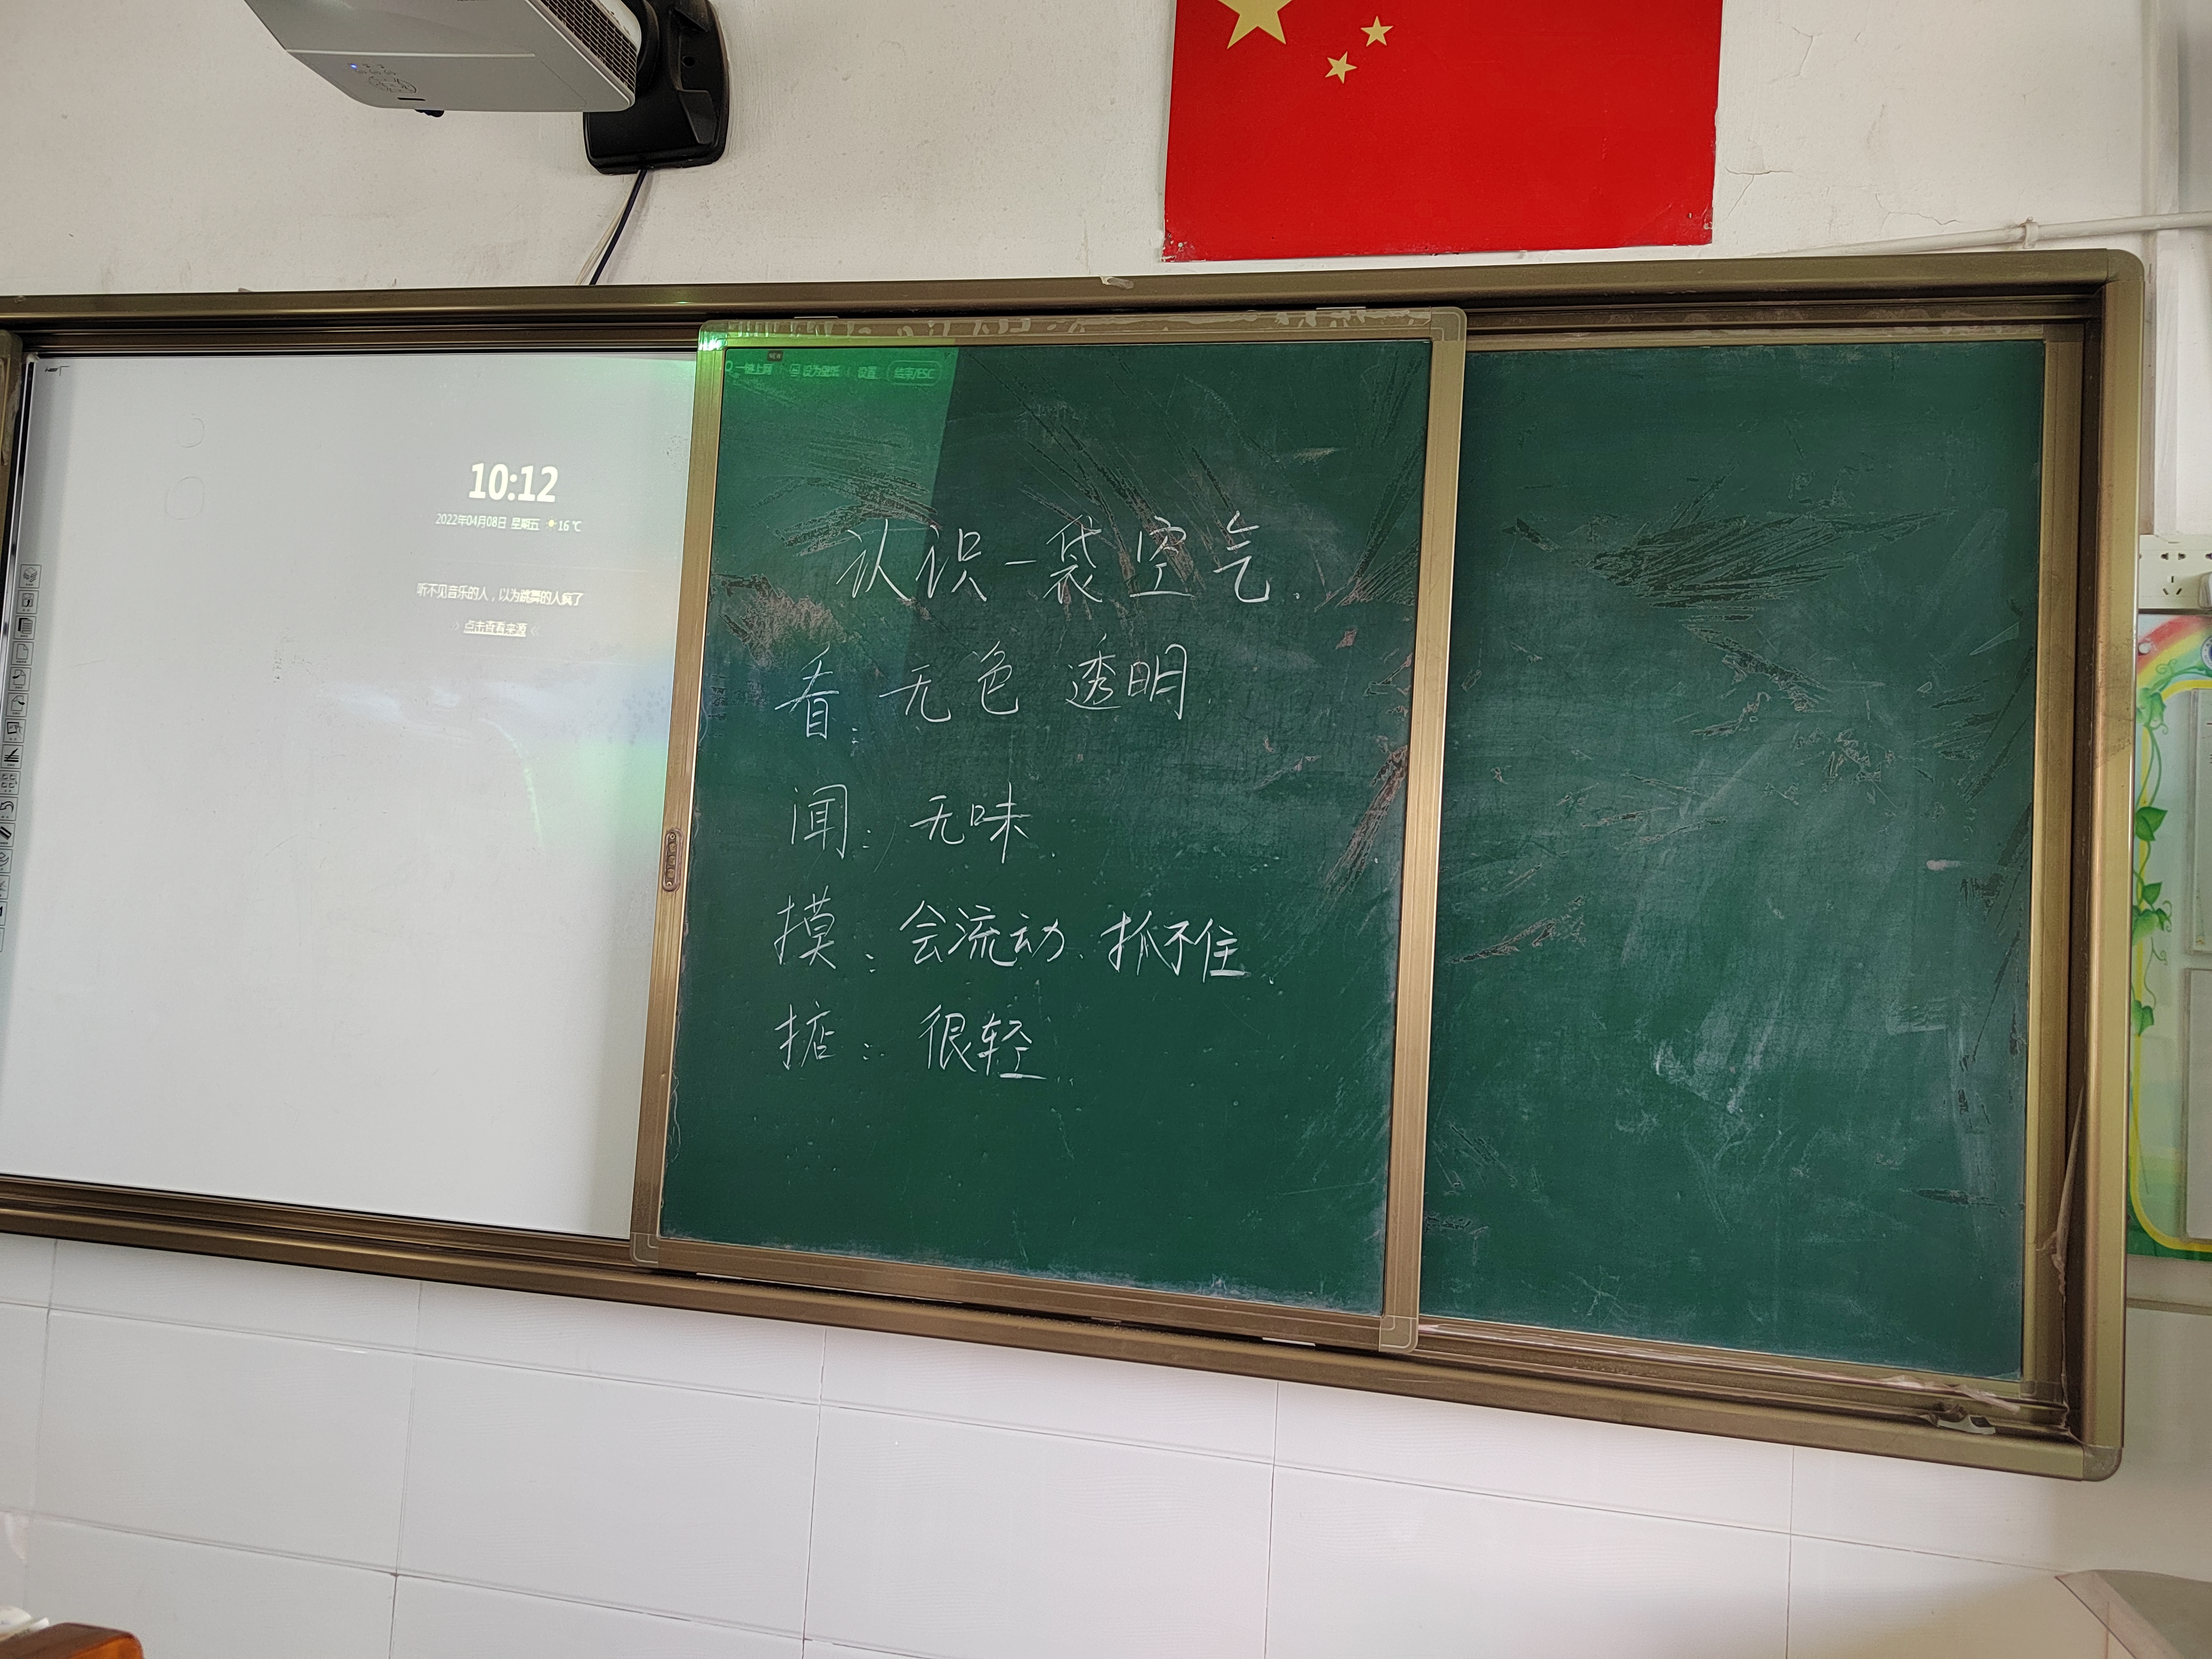 一键上网 设为壁纸 | 设置 结束/ESC
10:12
2022年04月08日 星期五 16℃
听不见音乐的人，以为跳舞的人疯了
点击查看来源
认识一袋空气.
看: 无色 透明
闻: 无味.
摸: 会流动. 抓不住.
掂: 很轻.